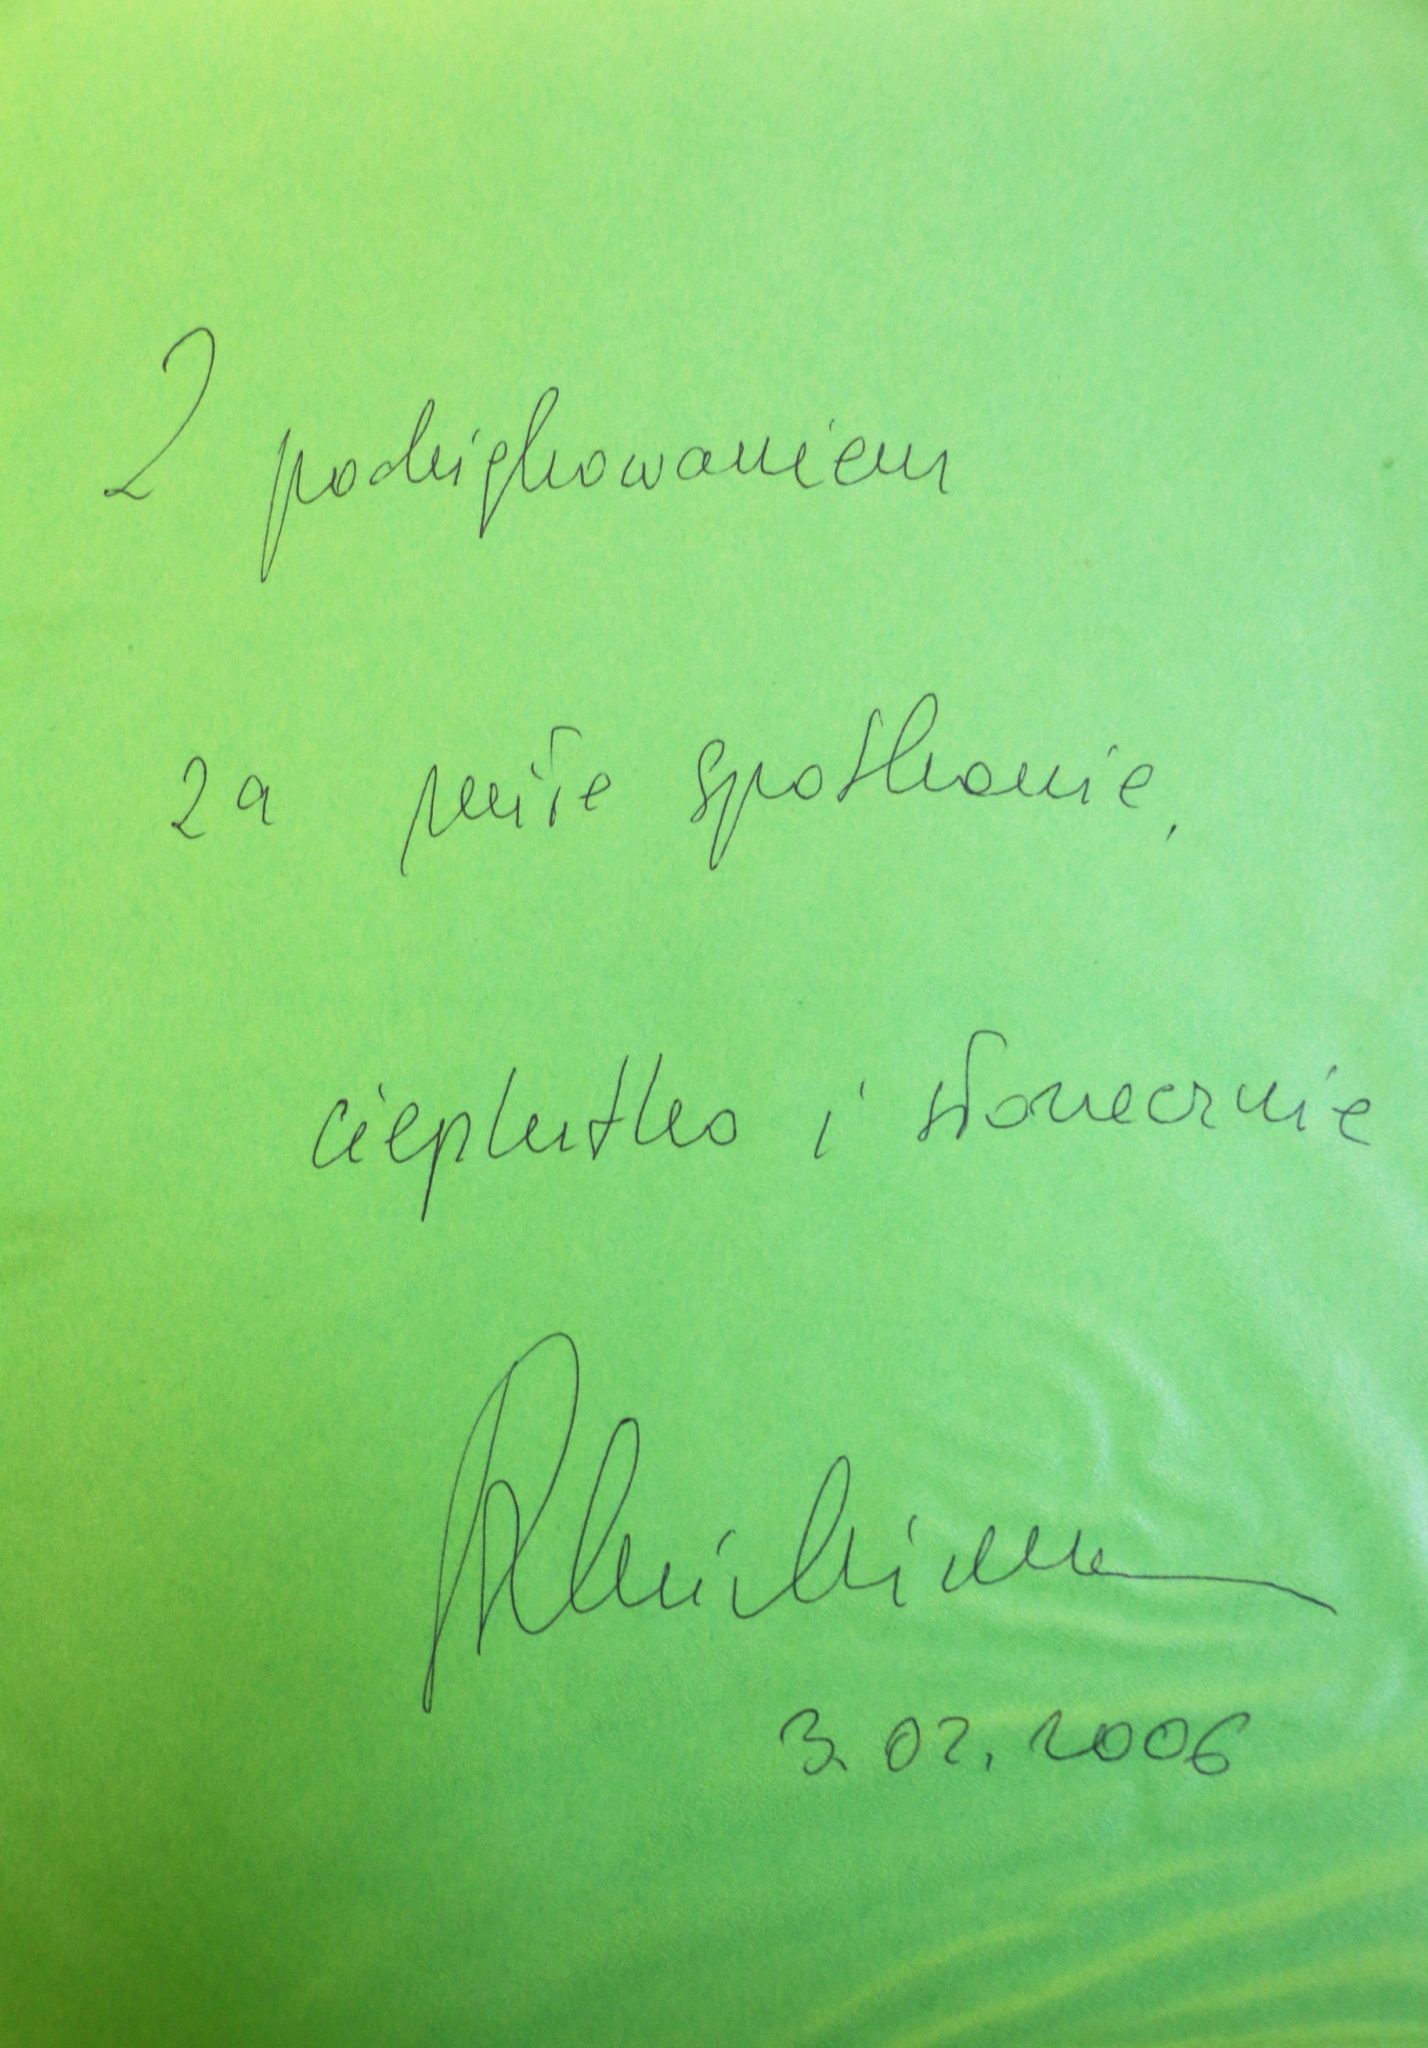 Z podziękowaniem
za miłe spotkanie,
cieplutko i słonecznie
3.02.2006